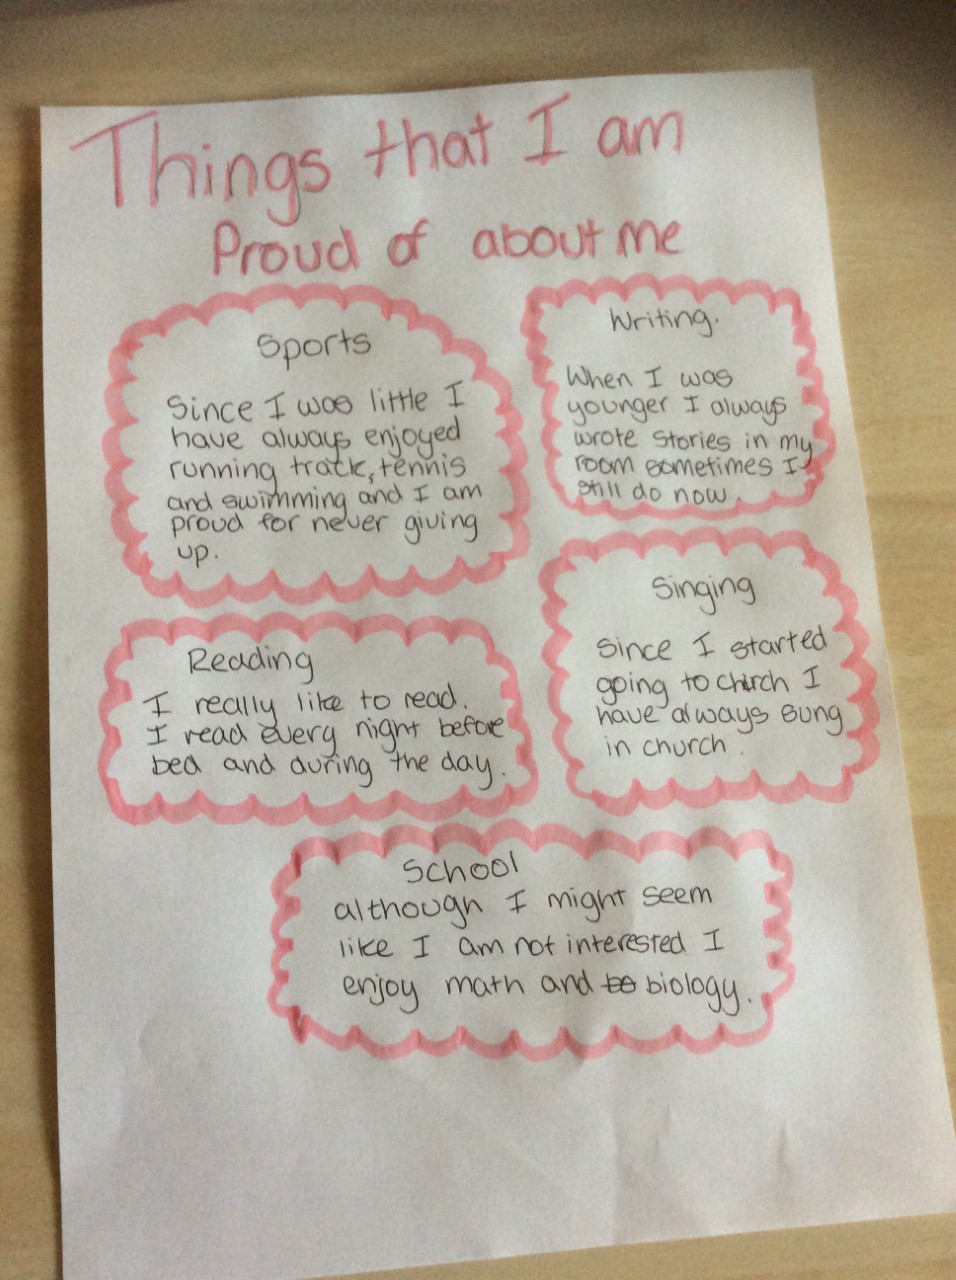 Things that I am
Proud of about me
Sports
Since I was little I
have always enjoyed
running track, tennis
and swimming and I am
proud for never giving
up.
Writing.
When I was
younger I always
wrote stories in my
room sometimes I
still do now.
Reading
I really like to read.
I read every night before
bed and during the day.
Singing
Since I started
going to church I
have always sung
in church.
School
although I might seem
like I am not interested I
enjoy math and be biology.